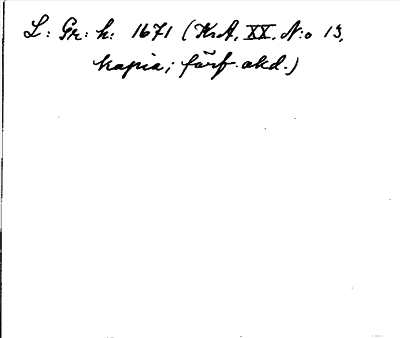 L: Gr: h: 1671 (K.A. XX. N:o 13,
kopia; förf. akd.)